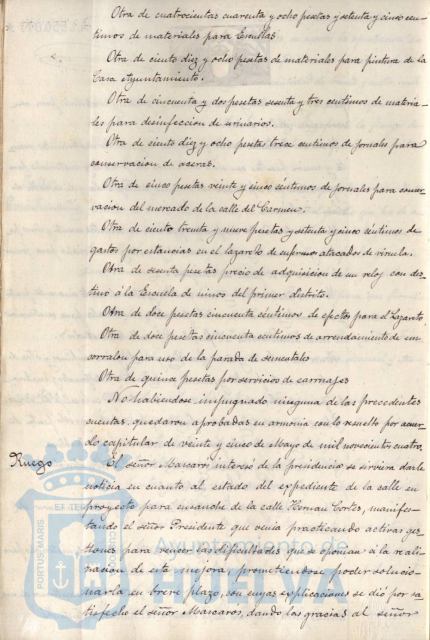 Otra de cuatrocientas cuarenta y ocho pesetas y setenta y cinco cén-
timos de materiales para Escuelas.
Otra de ciento diez y ocho pesetas de materiales para pintura de la
Casa Ayuntamiento.
Otra de cincuenta y dos pesetas sesenta y tres centimos de materia-
les para desinfeccion de urinarios.
Otra de ciento diez y ocho pesetas trece centimos de jornales para
conservacion de aceras.
Otra de cinco pesetas veinte y cinco céntimos de jornales para conser-
vacion del mercado de la calle del Carmen.
Otra de ciento treinta y nueve pesetas y setenta y cinco centimos de
gastos por estancias en el lazareto de enfermos atacados de viruela.
Otra de sesenta pesetas precio de adquisicion de un reloj con des-
tino á la Escuela de niños del primer distrito.
Otra de doce pesetas cincuenta céntimos de efectos para el Lazareto.
Otra de doce pesetas cincuenta centimos de arrendamiento de un
corralon para uso de la parada de sementales
Otra de quince pesetas por servicios de carruajes
No habiendose impugnado ninguna de las precedentes
cuentas, quedaron aprobadas en armonia con lo resuelto por acuer-
do capitular de veinte y cinco de Mayo de mil novecientos cuatro.
Ruego
El señor Mascaros interesó de la presidencia se sirviera darle
noticia en cuanto al estado del expediente de la calle en
proyecto para ensanche de la calle Hernan Cortés, manifes-
tando el señor Presidente que venia practicando activas ges-
tiones para vencer las dificultades que se oponian á la reali-
zacion de esta mejora, prometiendose poder solucio-
narla en breve plazo, con cuyas explicaciones se dió por sa-
tisfecho el señor Mascaros, dando las gracias al señor
PORTUS MARIS
ET TER
CUSTODIA
Ayuntamiento de
HUELVA